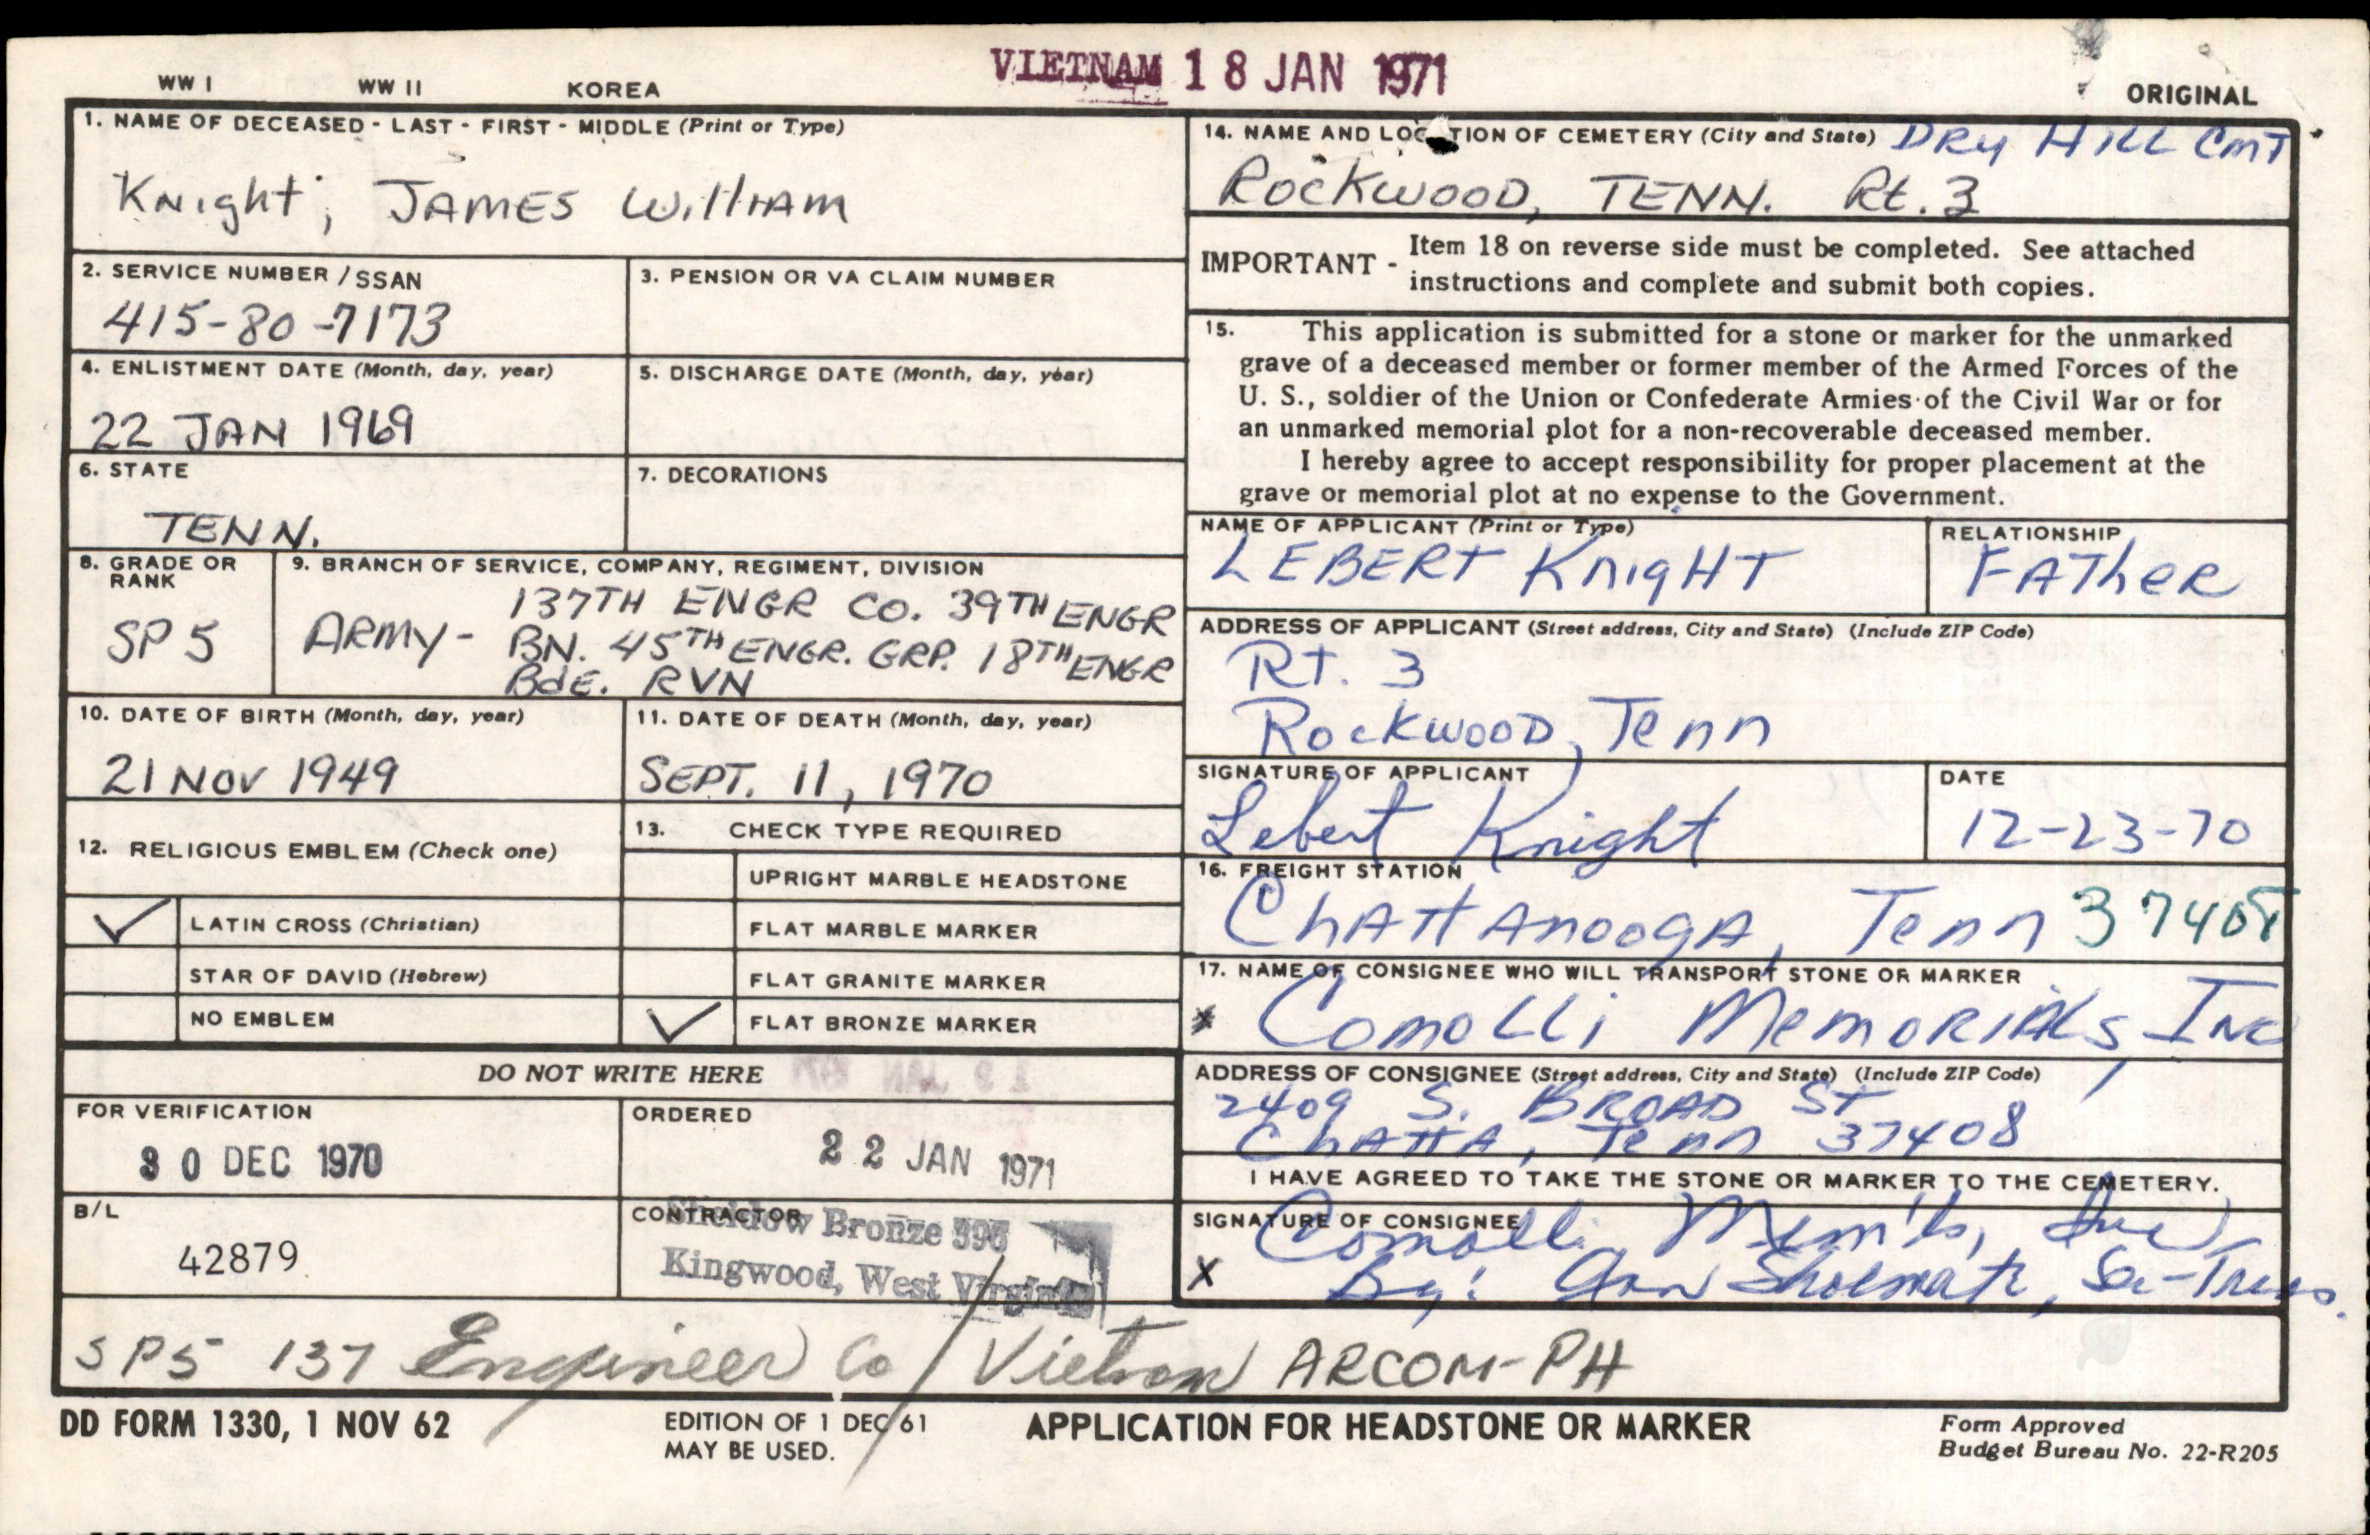 VIETNAM 18 JAN 1971
WW I WW II KOREA
ORIGINAL
1. NAME OF DECEASED - LAST - FIRST - MIDDLE (Print or Type)
Knight, JAMES WilliAM
2. SERVICE NUMBER / SSAN
415-80-7173
3. PENSION OR VA CLAIM NUMBER
4. ENLISTMENT DATE (Month, day, year)
22 JAN 1969
5. DISCHARGE DATE (Month, day, year)
6. STATE
TENN.
7. DECORATIONS
8. GRADE OR
RANK
SP 5
9. BRANCH OF SERVICE, COMPANY, REGIMENT, DIVISION
137TH ENGR CO. 39TH ENGR
ARMY- BN. 45TH ENGR. GRP. 18TH ENGR
Bde. RVN
10. DATE OF BIRTH (Month, day, year)
21 NOV 1949
11. DATE OF DEATH (Month, day, year)
SEPT. 11, 1970
12. RELIGIOUS EMBLEM (Check one)
✓ LATIN CROSS (Christian)
STAR OF DAVID (Hebrew)
NO EMBLEM
13. CHECK TYPE REQUIRED
UPRIGHT MARBLE HEADSTONE
FLAT MARBLE MARKER
FLAT GRANITE MARKER
✓ FLAT BRONZE MARKER
DO NOT WRITE HERE
FOR VERIFICATION
30 DEC 1970
ORDERED
22 JAN 1971
B/L
42879
CONTRACTOR
Bronze
Kingwood, West Virginia
14. NAME AND LOCATION OF CEMETERY (City and State) DRY HILL CMT
ROCKWOOD, TENN. Rt. 3
IMPORTANT - Item 18 on reverse side must be completed. See attached
instructions and complete and submit both copies.
15. This application is submitted for a stone or marker for the unmarked
grave of a deceased member or former member of the Armed Forces of the
U. S., soldier of the Union or Confederate Armies of the Civil War or for
an unmarked memorial plot for a non-recoverable deceased member.
I hereby agree to accept responsibility for proper placement at the
grave or memorial plot at no expense to the Government.
NAME OF APPLICANT (Print or Type)
LEBERT KnigHT
RELATIONSHIP
FATheR
ADDRESS OF APPLICANT (Street address, City and State) (Include ZIP Code)
RT. 3
RockwooD, Tenn
SIGNATURE OF APPLICANT
Lebert Knight
DATE
12-23-70
16. FREIGHT STATION
ChATTANoogA, Tenn 37408
17. NAME OF CONSIGNEE WHO WILL TRANSPORT STONE OR MARKER
* ComoLLi MemoRiAls, Inc
ADDRESS OF CONSIGNEE (Street address, City and State) (Include ZIP Code)
2409 S. BROAD ST
ChATTA, Tenn 37408
I HAVE AGREED TO TAKE THE STONE OR MARKER TO THE CEMETERY.
SIGNATURE OF CONSIGNEE
Comolli Mem'ls, Inc
X By: Ann Shoemate, Sec-Treas.
SP5 137 Engineer Co / Vietnam ARCOM-PH
DD FORM 1330, 1 NOV 62
EDITION OF 1 DEC 61
MAY BE USED.
APPLICATION FOR HEADSTONE OR MARKER
Form Approved
Budget Bureau No. 22-R205